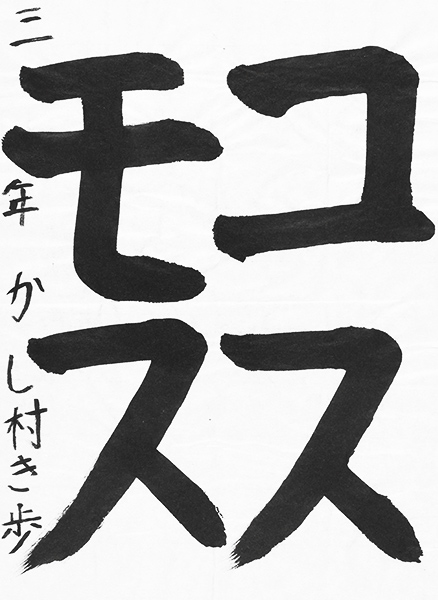 コス
モス
三年かし村き歩